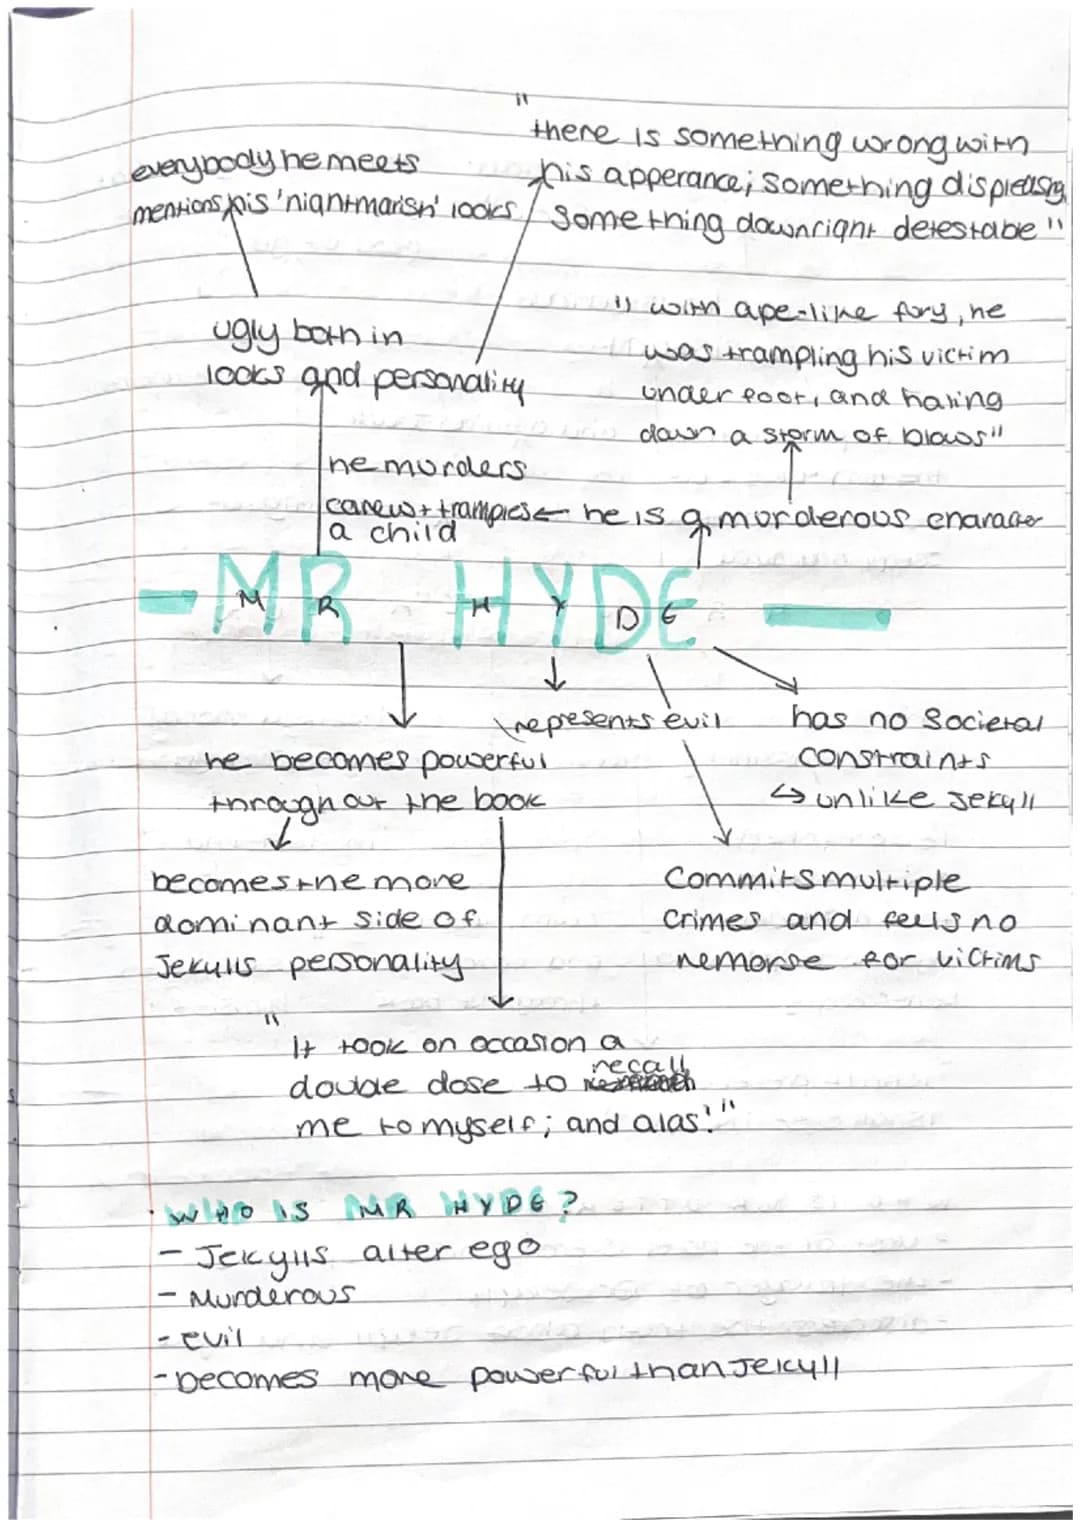 "
there is something wrong with
his apperance; something displeasing
something downright detestable "
everybody he meets
mentions his 'nightmarish' looks
ugly both in
looks and personality
" with ape-like fury, he
was trampling his victim
under foot, and haring
down a storm of blows"
he murders
carew + tramples ← he is a murderous character
a child
- MR HYDE -
he becomes powerful
throughout the book
represents evil
has no societal
constraints
↪ unlike Jekyll
becomes the more
dominant side of
Jekylls personality
Commits multiple
crimes and feels no
remorse for victims
"
It took on occasion a
double dose to recall
me to myself; and alas!"
· WHO IS MR HYDE?
- Jekylls alter ego
- Murderous
- evil
- becomes more powerful than Jekyll